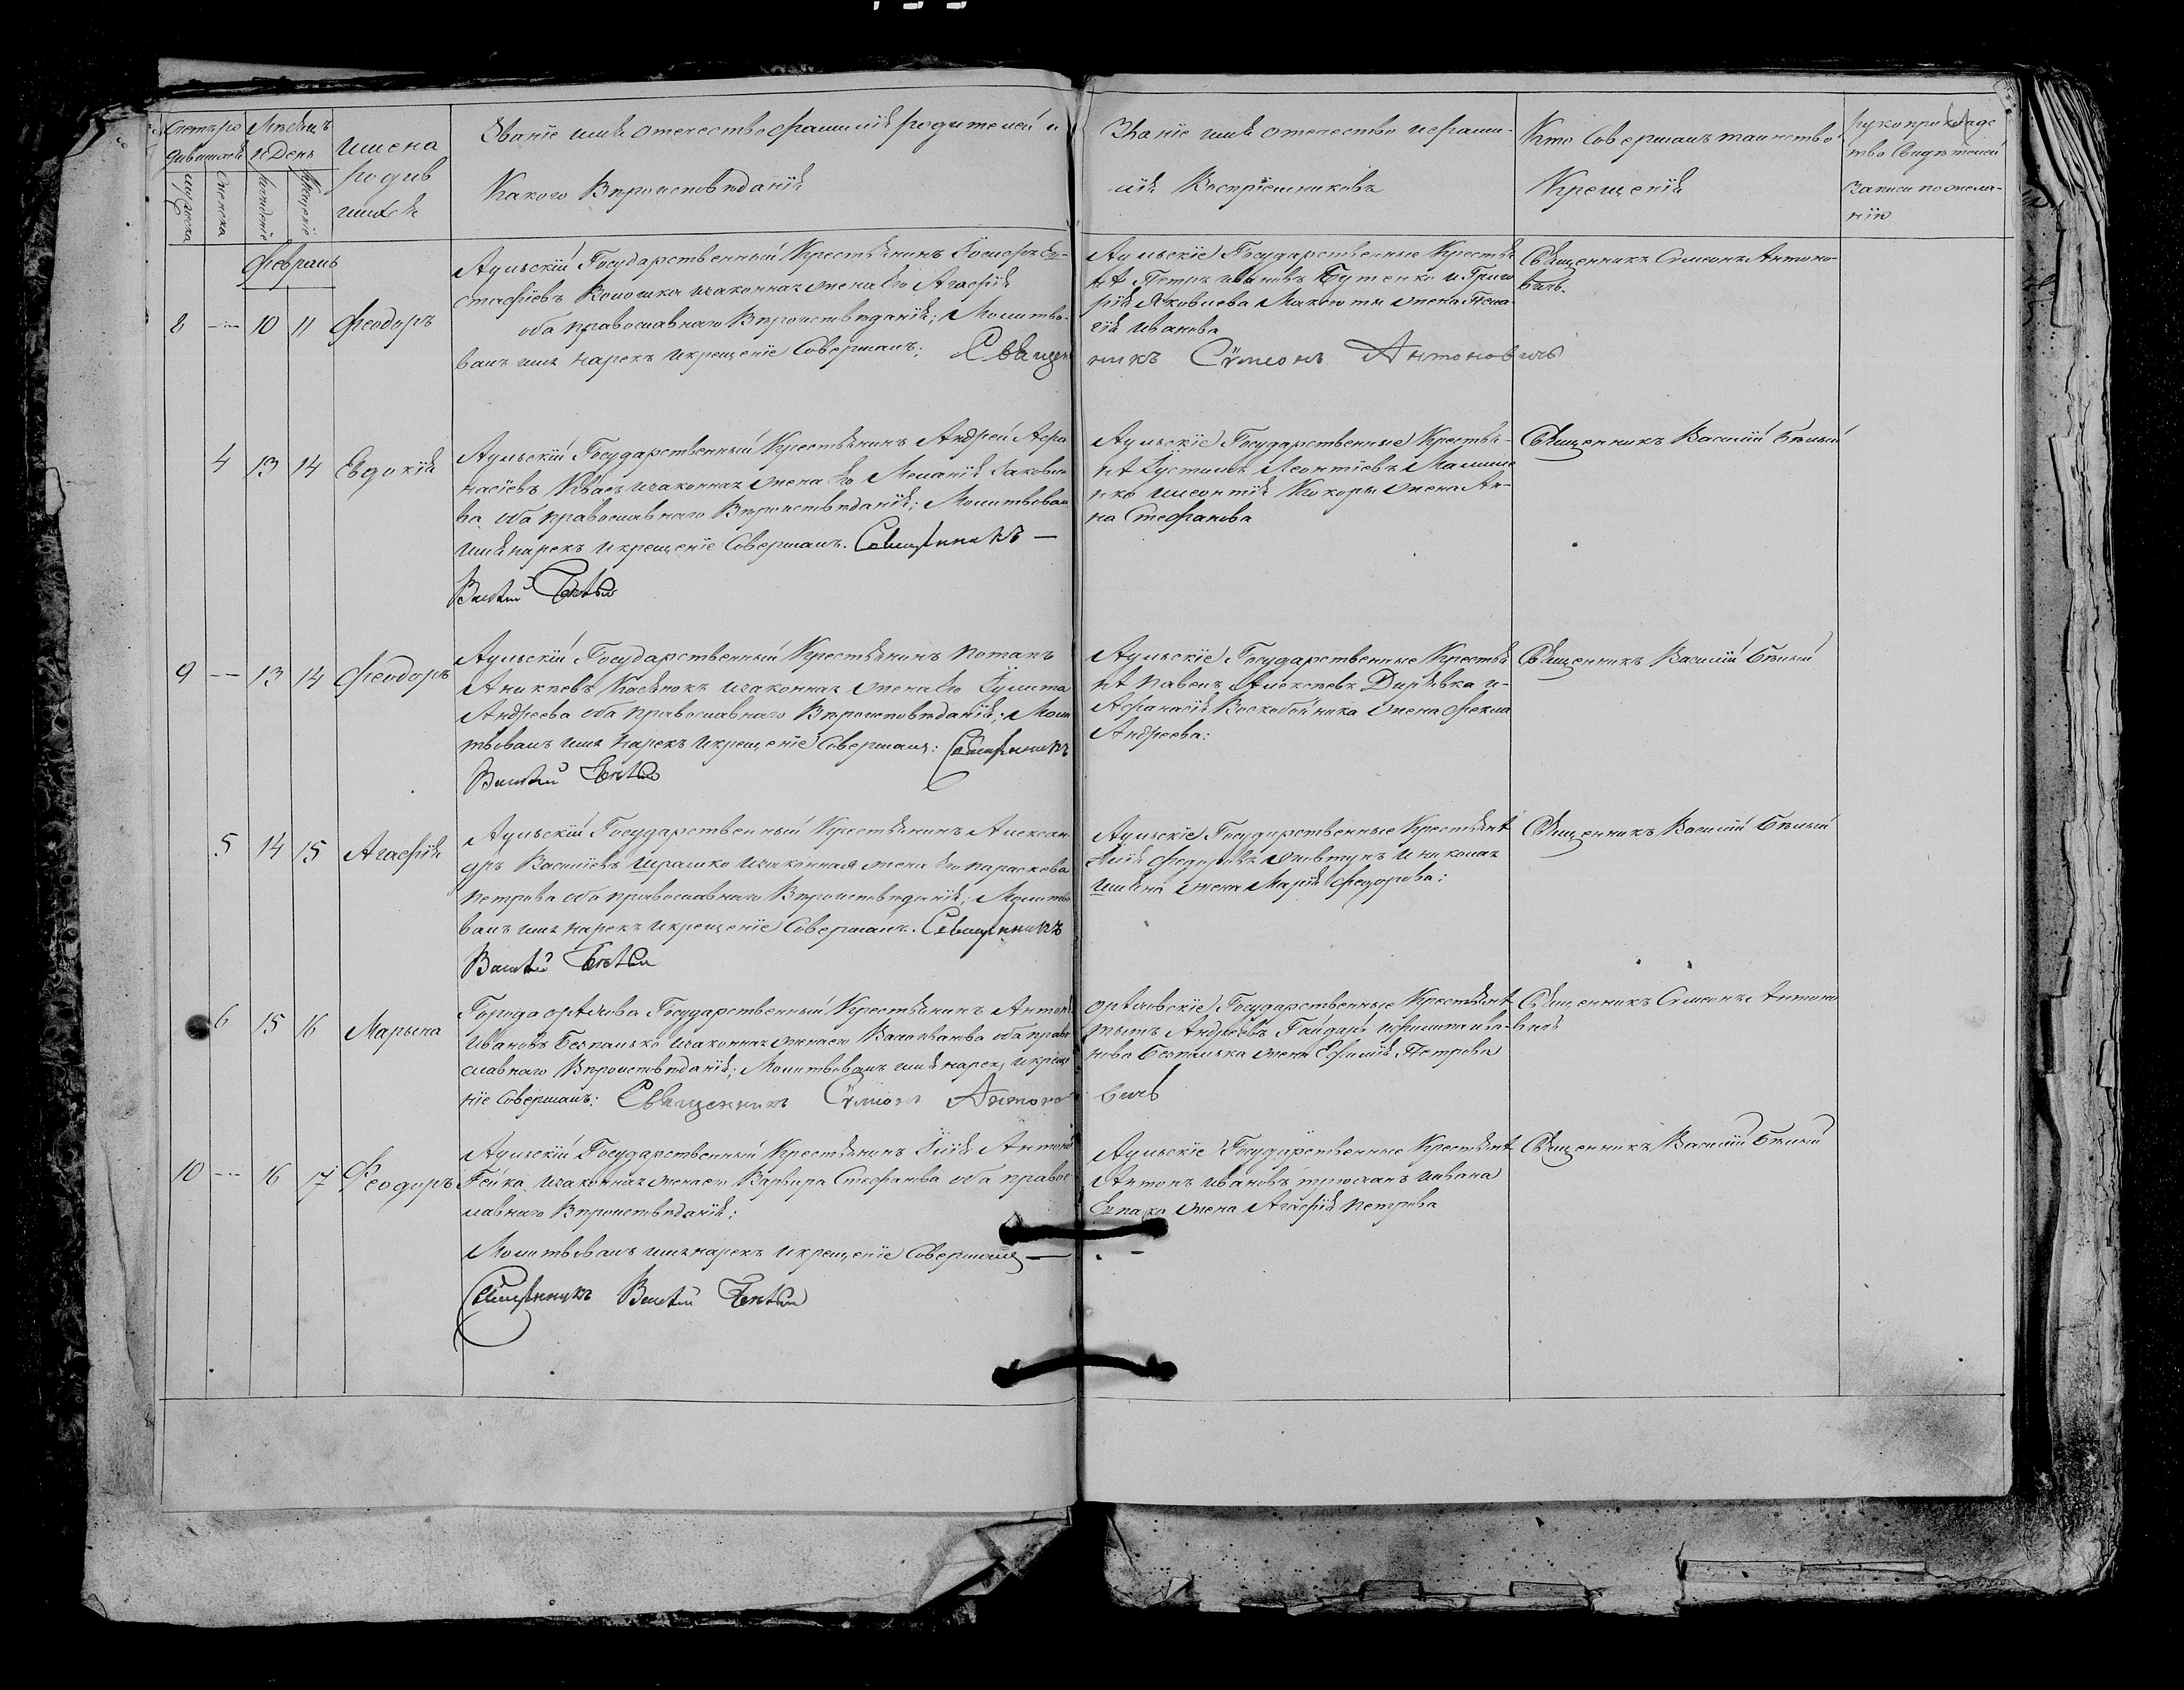 Счетъ ро
дившихся
Мѣсяцъ
и День
имена
родив
шихся
Званіе имя отечество фамилія родителей и
Какого Вѣроисповѣданія
Званіе имя отечество и фами-
лія Воспріемниковъ
Кто Совершалъ таинство
Крещенія
рукоприкладс
тво Свидѣтелей
Записи по жела-
нію
мужеска
женска
рожденіе
Крещеніе
февраль
8 -- 10 11 Феодоръ
Аульскій Государственный Крестьянинъ Іосифъ Ев-
стафіевъ Волошка и законная жена его Агафія
оба православнаго Вѣроисповѣданія; Молитво-
валъ имя нарекъ и крещеніе Совершалъ; Священ
Аульскіе Государственные Крестья
нѣ Петръ ивановъ Бутенко и Григо
рія Яковлева жена Пела-
гія иванова
никъ Сумеонъ Антоновичъ
Священникъ Симеонъ Антоно-
вичъ.
4 13 14 Евдокія
Аульскій Государственный Крестьянинъ Андрей Афа
насіевъ Квасъ и законная жена его Меланія Іаковле
ва оба православнаго Вѣроисповѣданія; Молитвовалъ
имя нарекъ и крещеніе Совершалъ. Священникъ —
Василій Бѣлый
Аульскіе Государственные Крестья-
нѣ Іустинъ Леонтіевъ
нко жена Ан-
на Стефанова
Священникъ Василій Бѣлый
9 -- 13 14 Феодоръ
Аульскій Государственный Крестьянинъ Потапъ
Аникѣевъ Касянокъ и законная жена его Іулита
Андреева оба православнаго Вѣроисповѣданія; Моли
твовалъ имя нарекъ и крещеніе Совершалъ: Священникъ
Василій Бѣлый
Аульскіе Государственные Крестья
нѣ Павелъ Алексѣевъ и-
Афанасія Воскобойника жена Фекла
Андреева:
Священникъ Василій Бѣлый
5 14 15 Агафія
Аульскій Государственный Крестьянинъ Алексан
дръ Василіевъ Ирашко и законная жена его параскева
Петрова оба православнаго Вѣроисповѣданія; Молитво
валъ имя нарекъ и крещеніе Совершалъ. Священникъ
Василій Бѣлый
Аульскіе Государственные Крестьянѣ
Илія Федоровъ и николая
жена Марія Федорова:
Священникъ Василій Бѣлый
6 15 16 Марьяна
Города орѣхова Государственный Крестьянинъ Антонъ
Ивановъ Безпалько и законная жена его иванова оба право
славнаго Вѣроисповѣданія; Молитвовалъ имя нарекъ и креще
ніе Совершалъ: Священникъ Сумеонъ Антоно
орѣховскіе Государственные Крестьянѣ
Андреевъ Гайдаръ и филипа ива-
нова Безпалька жена Ефимія Петрова
вичъ
Священникъ Симеонъ Антоно
вичъ
10 --- 16 17 Феодоръ
Аульскій Государственный Крестьянинъ Илія Антоновъ
Гейка и законная жена его Варвара Стефанова оба правос
лавнаго Вѣроисповѣданія;
Молитвовалъ имя нарекъ и крещеніе Совершалъ —
Священникъ Василій Бѣлый
Аульскіе Государственные Крестьянѣ
Антонъ ивановъ трюханъ и ивана
жена Агафія Петрова
Священникъ Василій Бѣлый